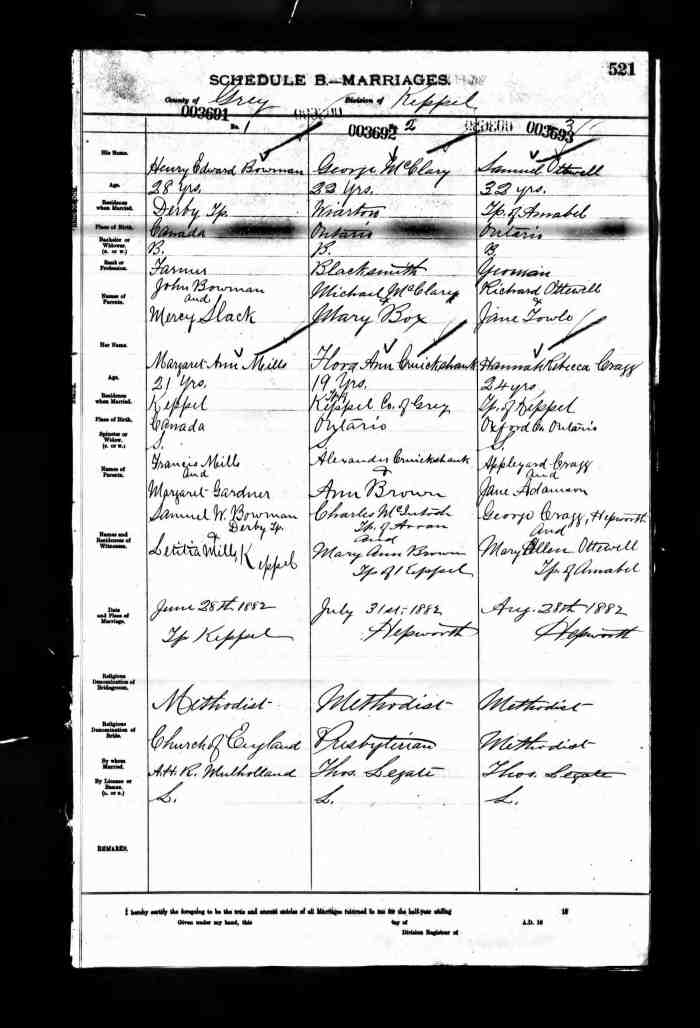 521
SCHEDULE B.—MARRIAGES.
County of Grey Division of Keppel
003691 003692 003693
No. 1 2 3
His Name. Henry Edward Bowman George McClary Samuel Ottewell
Age. 28 yrs. 22 yrs. 32 yrs.
Residence when Married. Derby Tp. Wiarton Tp. of Amabel
Place of Birth. Canada Ontario Ontario
Bachelor or Widower. (B. or W.) B. B. B
Rank or Profession. Farmer Blacksmith Yeoman
Names of Parents. John Bowman and Mercy Slack Michael McClary & Mary Box Richard Ottewell & Jane Towle
Her Name. Margaret Ann Mills Flora Ann Cruickshank Hannah Rebecca Cragg
Age. 21 Yrs. 19 Yrs. 24 yrs
Residence when Married. Keppel Tp. Keppel Co. of Grey Tp. of Keppel
Place of Birth. Canada Ontario Oxford Co. Ontario
Spinster or Widow. (S. or W.) S. S. S.
Names of Parents. Francis Mills and Margaret Gardner Alexander Cruickshank & Ann Brown Appleyard Cragg and Jane Adamson
Names and Residences of Witnesses. Samuel W. Bowman Derby Tp. & Letitia Mills Keppel Charles McIntosh Tp. of Arran and Mary Ann Brown Tp. of Keppel George Cragg, Hepworth and Mary Ellen Ottewell Tp. of Amabel
Date and Place of Marriage. June 28th 1882 Tp Keppel July 31st, 1882 Hepworth Aug. 28th 1882 Hepworth
Religious Denomination of Bridegroom. Methodist Methodist Methodist
Religious Denomination of Bride. Church of England Presbyterian Methodist
By whom Married. A.H.R. Mulholland Thos. Legate Thos. Legate
By License or Banns. (L. or B.) L. L. L.
REMARKS.
I hereby certify the foregoing to be the true and correct entries of all Marriages returned to me for the half-year ending 18
Given under my hand, this day of A.D. 18
Division Registrar of